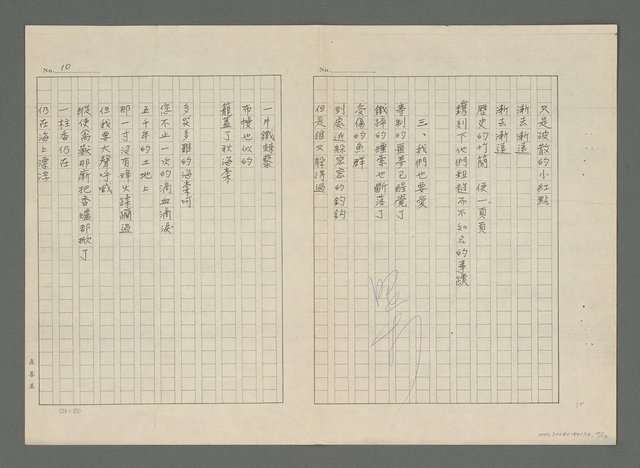 No.
只是破散的小紅點
漸去漸遠
漸去漸遠
歷史的竹簡 便一頁頁
鐫刻下他們粗糙而不知名的事蹟
三、我們也要愛
專制的噩夢已醒覺了
鐵鏽的纜索也斷落了
受傷的魚群
到處逃躲密密的釣鈎
但是誰又躲得過
No. 10
一片鐵蒺藜
布幔也似的
籠蓋了秋海棠
多災多難的海棠呵
您不止一次的滴血滴淚
五千年的土地上
那一寸沒有烽火蹂躪過
但我要大聲呼喊
縱使禽獸那厮把香爐都掀了
一炷香仍在
仍在海上漂浮
(24×25)